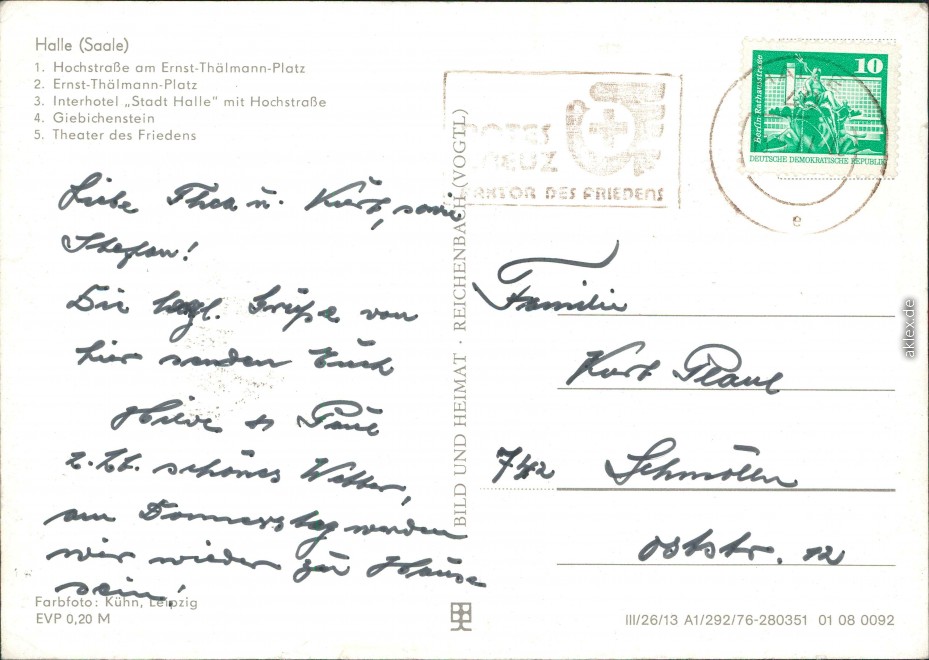 Halle (Saale)
1. Hochstraße am Ernst-Thälmann-Platz
2. Ernst-Thälmann-Platz
3. Interhotel „Stadt Halle" mit Hochstraße
4. Giebichenstein
5. Theater des Friedens
ROTES
KREUZ
FAKTOR DES FRIEDENS
Berlin-Rathausstraße
10
DEUTSCHE DEMOKRATISCHE REPUBLIK
e
Liebe Thea u. Kurt, sowie
Stefan!
Die hzgl. Grüße von
hier senden Euch
Hilde & Paul
z. Zt. schönes Wetter,
am Donnerstag werden
wir wieder zu Hause
sein!
BILD UND HEIMAT · REICHENBACH (VOGTL)
Familie
Kurt Plaul
742 Schmölln
Oststr. 12
Farbfoto: Kühn, Leipzig
EVP 0,20 M
III/26/13 A1/292/76-280351 01 08 0092
aklex.de